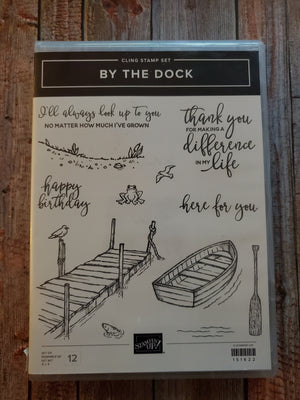 CLING STAMP SET
BY THE DOCK
I'll always look up to you
NO MATTER HOW MUCH I'VE GROWN
thank you
FOR MAKING A
difference
IN MY
life
happy
birthday
here for you
STAMPIN' UP!
12
151622